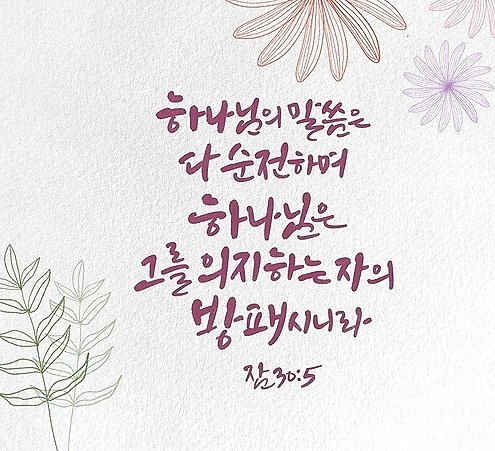 하나님의 말씀은
다 순전하며
하나님은
그를 의지하는 자의
방패시니라
잠 30:5